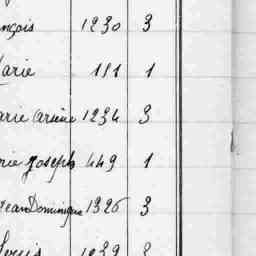 nçois 1230 3
Marie 111 1
arie Cécile 1234 3
rie Joseph 449 1
Jean Dominique 1326 3
Louis 1239 3